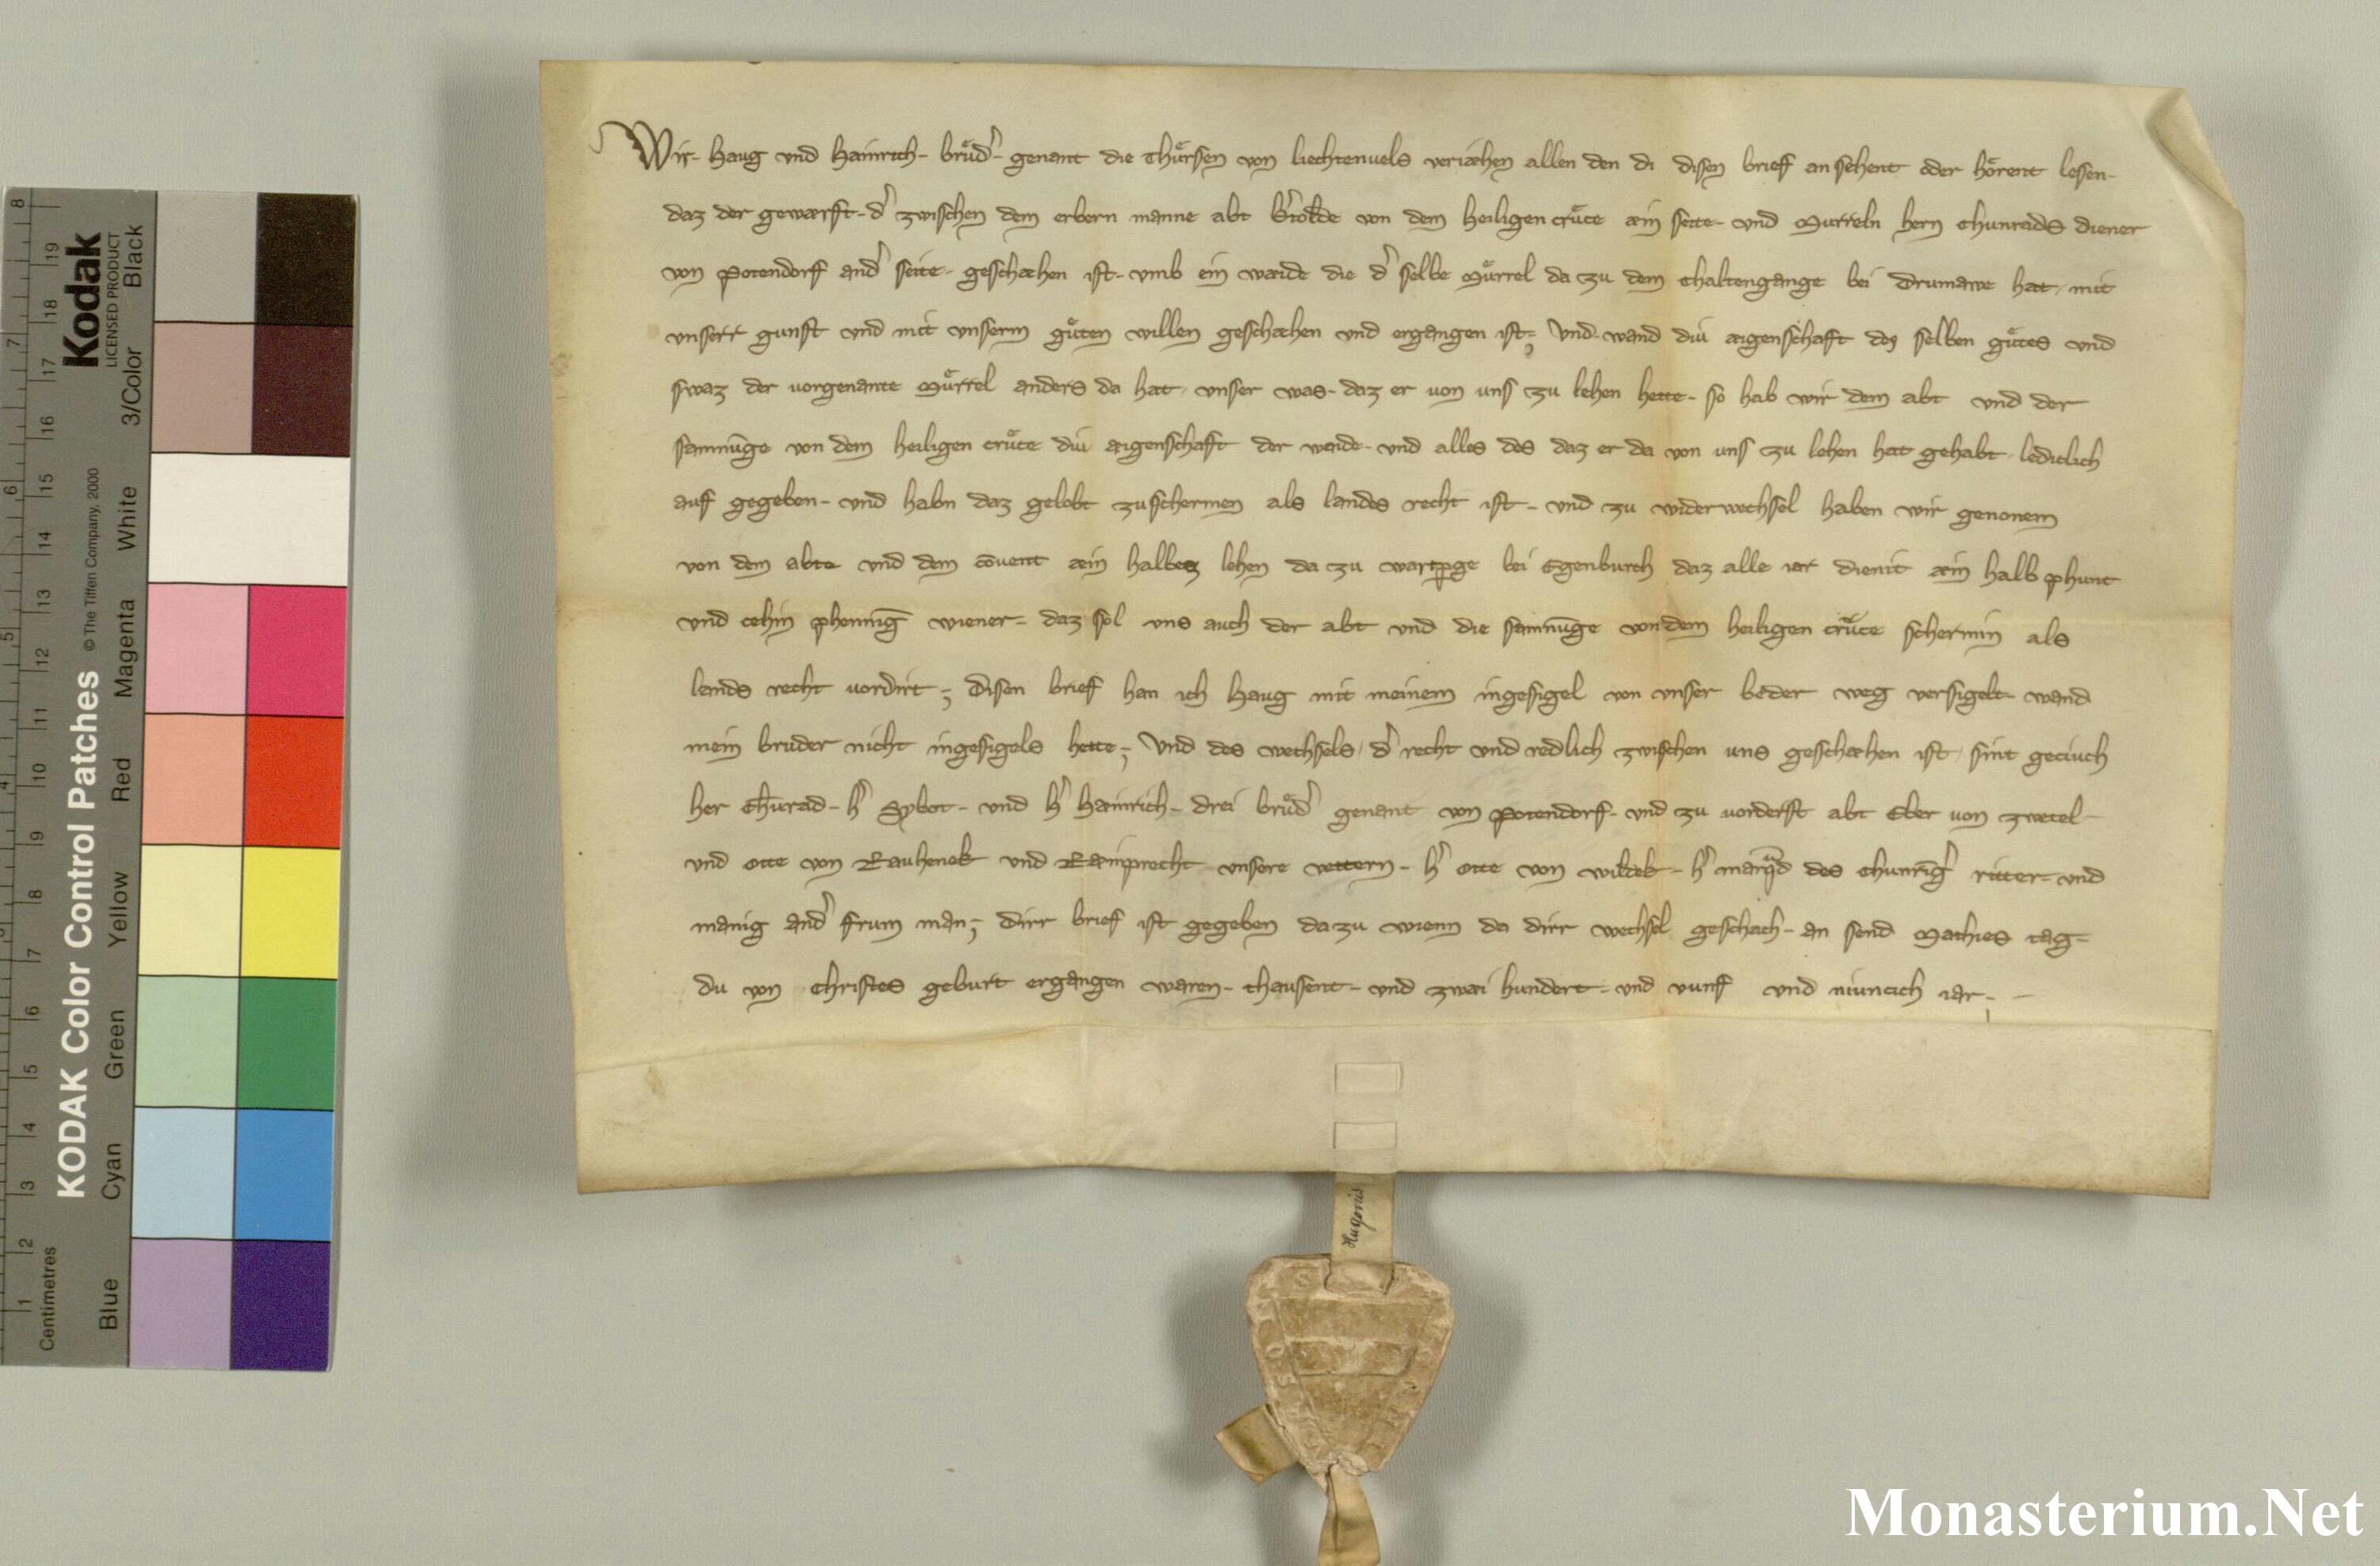 Wir· Haug vnd Hainrich· brůd᷑· genant die Thůrsen von liechtenuels veriæhen allen den di disen brief an sehent oder hǒrent lesen·
daz der gewærft· d᷑ zwischen dem erbern manne abt b᷑tolde von dem heiligen crůce æin seite· vnd Murreln hern Chunrads diener
von Potendorf and᷑ seite· geschæhen ist· vmb ein waide die d᷑ selbe Můrrel da zu dem Chaltengange bei Drumawe hat· mit
vnserr gunst vnd mit vnserm gůten willen geschæhen vnd ergangen ist; Vnd wand diu æigenschaft dez selben gůtes vnd
swaz der uorgenante Můrrel anders da hat· vnser was· daz er uon uns zu lehen hette· so hab wir dem abt vnd der
samnūge von dem heiligen crůce diu æigenschaft der waide· vnd alles des daz er da von uns zu lehen hat gehabt· ledichlich
auf gegeben· vnd habn daz gelobt zuschermen als landes recht ist· vnd zu widerwechsel haben wir genomem
von dem abte vnd dem cōuent æin halbez lehen da zu wartp̱ge bei Egenburch daz alle iar dienit æin halb phunt
vnd cehin phennīg wiener· daz sol vns auch der abt vnd die samnūge von dem heiligen crůce schermin als
lands recht uordirt; Disen brief han ich Haug mit meinem ingesigel von vnser beder weg versigelt· wand
mein bruder nicht ingesigels hette; Vnd des wechsels· d᷑ recht vnd redlich zwischen uns geschæhen ist· sint geciuch
her Ch̄urad· h᷑ Sybot· vnd h᷑ Hæinrich· drei brůd᷑ genant von Potendorf· vnd zu uorderst abt Eber von zwetel·
vnd Otte von Rauhenek vnd Ræinprecht vnsere vettern· h᷑ Otte von wildek· h᷑ marq̄ᵃd des Chunrīg᷑ ritter· vnd
manig and᷑ frum man; Dirr brief ist gegeben da zu wienn da dirr wechsel geschach· an send Mathies tag·
du von Christes geburt ergangen waren· thausent· vnd zwæi hundert· vnd vunf vnd niuncich iar·
Hugonis
Kodak
LICENSED PRODUCT
KODAK Color Control Patches
© The Tiffen Company, 2000
Black
3/Color
White
Magenta
Red
Yellow
Green
Cyan
Blue
Centimetres
1 2 3 4 5 6 7 8 9 10 11 12 13 14 15 16 17 18 19
4 5 6 7 8
Monasterium.Net